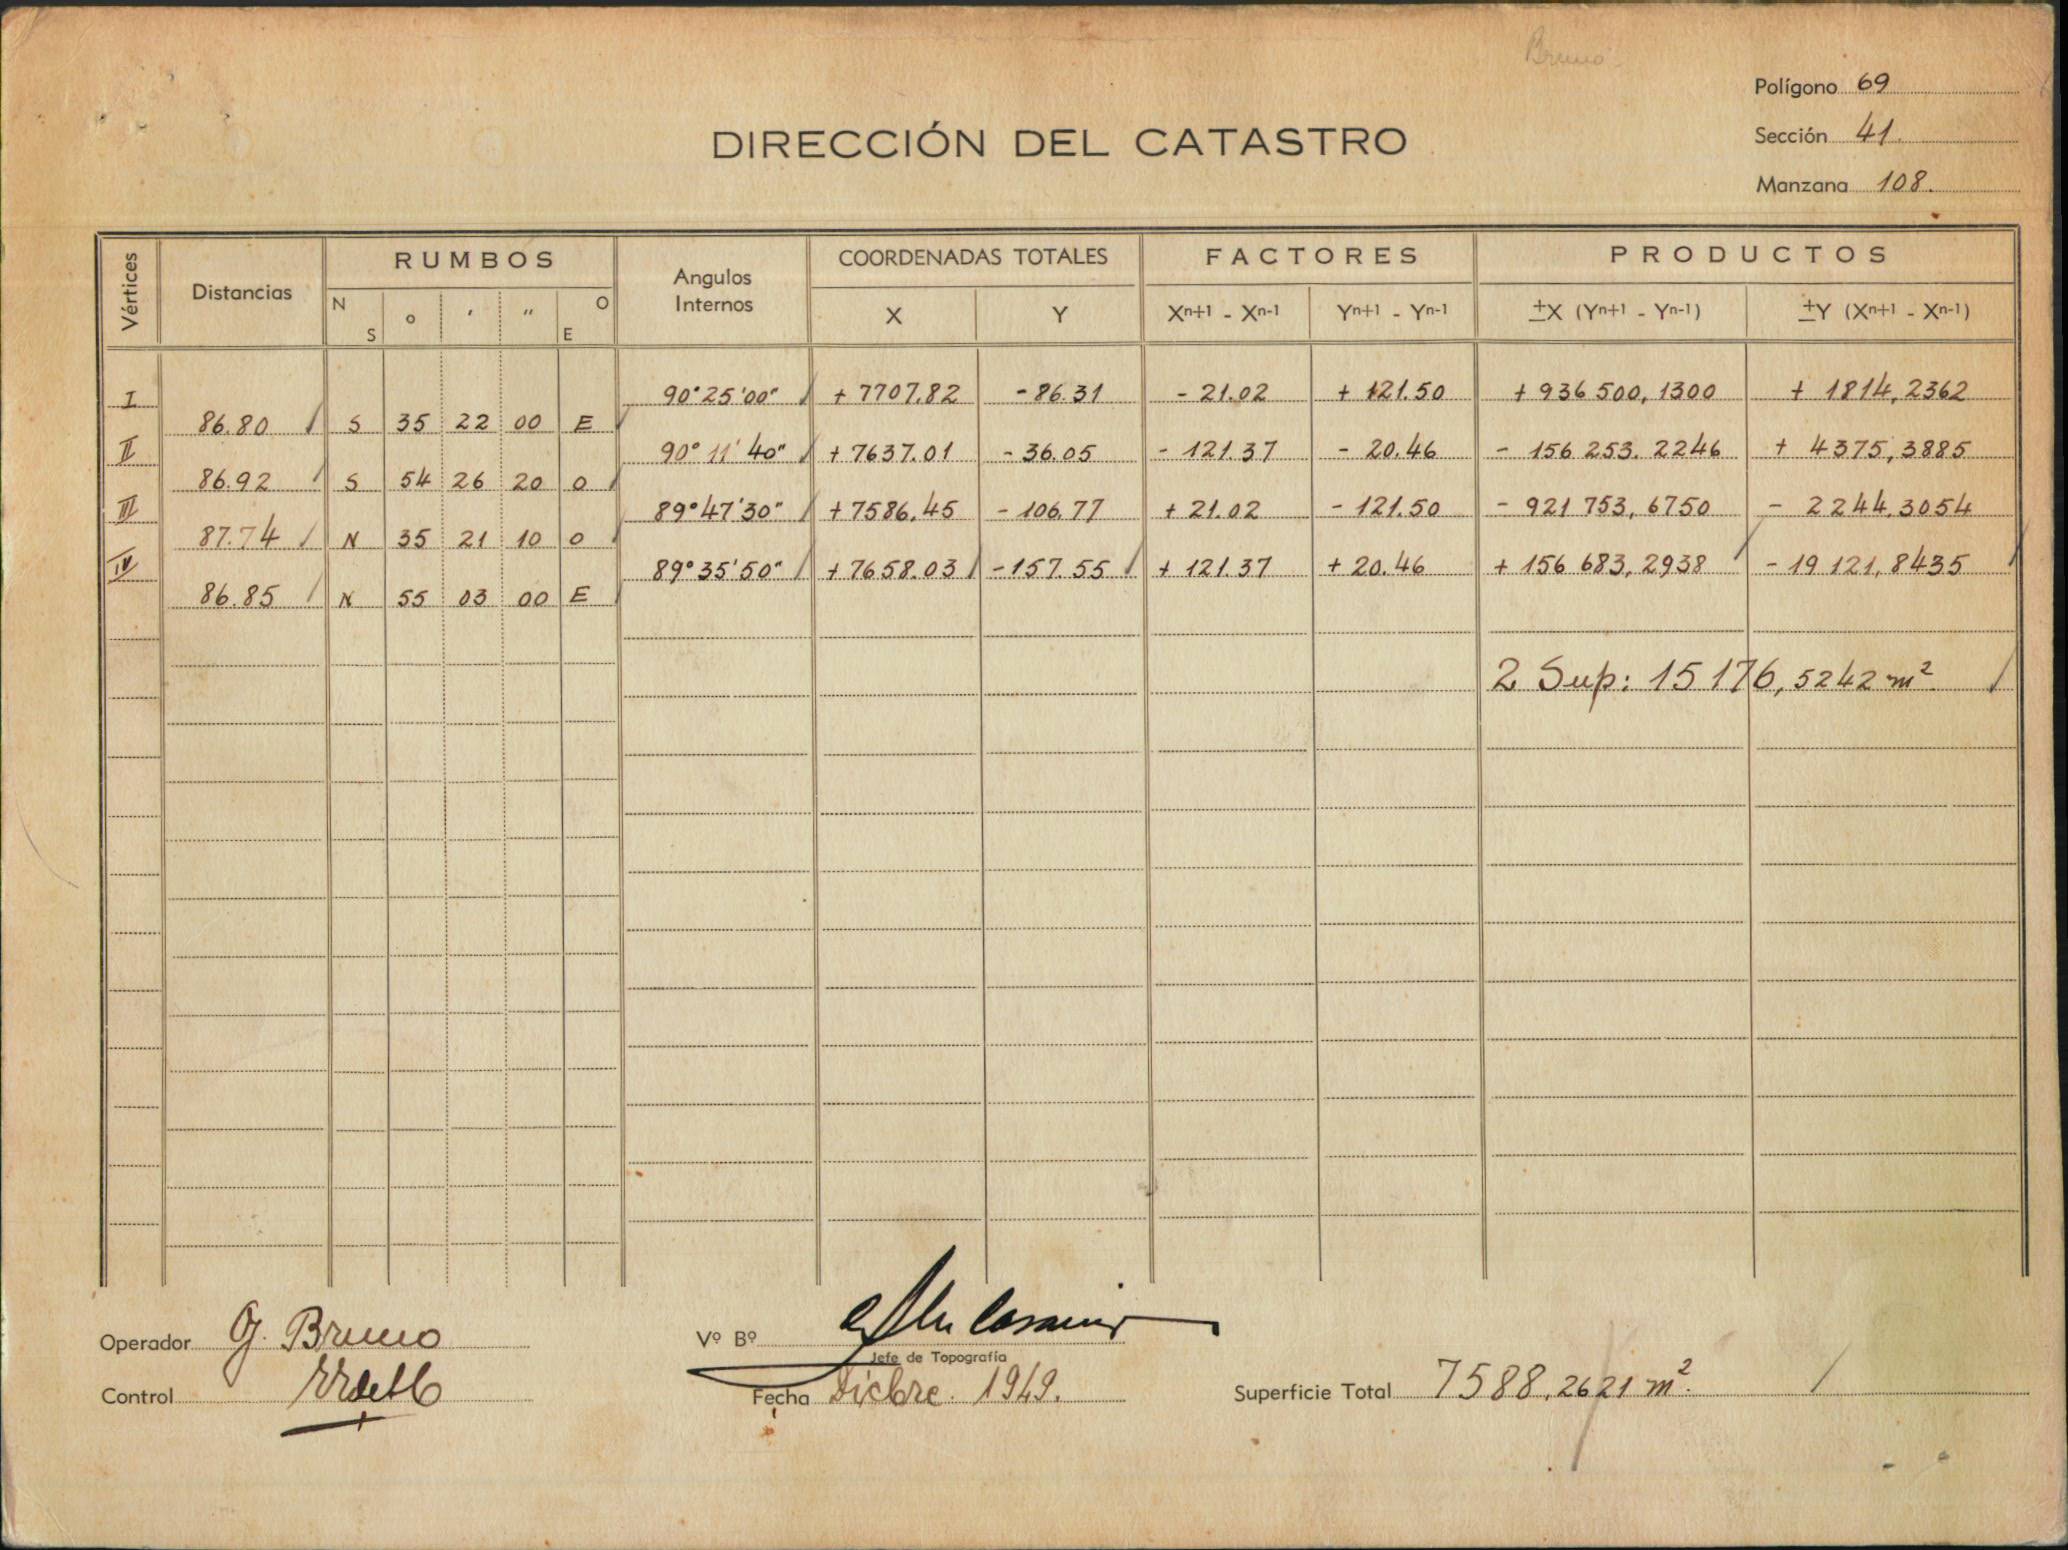 Bruno
Polígono 69
Sección 41.
Manzana 108.
DIRECCIÓN DEL CATASTRO
Vértices Distancias RUMBOS Angulos Internos COORDENADAS TOTALES FACTORES PRODUCTOS
N S o ′ ″ O E X Y Xn+1 - Xn-1 Yn+1 - Yn-1 ±X (Yn+1 - Yn-1) ±Y (Xn+1 - Xn-1)
I 90°25'00" + 7707.82 - 86.31 - 21.02 + 121.50 + 936 500,1300 + 1814,2362
86.80 S 35 22 00 E
II 90° 11' 40" + 7637.01 - 36.05 - 121.37 - 20.46 - 156 253.2246 + 4375,3885
86.92 S 54 26 20 O
III 89°47'30" + 7586.45 - 106.77 + 21.02 - 121.50 - 921 753,6750 - 2244.3054
87.74 N 35 21 10 O
IV 89°35'50" + 7658.03 - 157.55 + 121.37 + 20.46 + 156 683,2938 - 19 121,8435
86.85 N 55 03 00 E
2 Sup: 15 176,5242 m²
Operador G. Bruno
Vº Bº
Jefe de Topografía
Control
Fecha Dicbre. 1949.
Superficie Total 7588,2621 m².